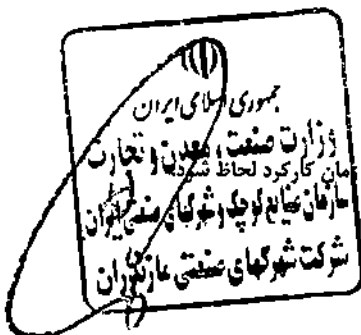 جمهوری اسلامی ایران
وزارت صنعت، معدن و تجارت
زمان کارکرد لحاظ شود
سازمان صنایع کوچک و شهرکهای صنعتی ایران
شرکت شهرکهای صنعتی مازندران